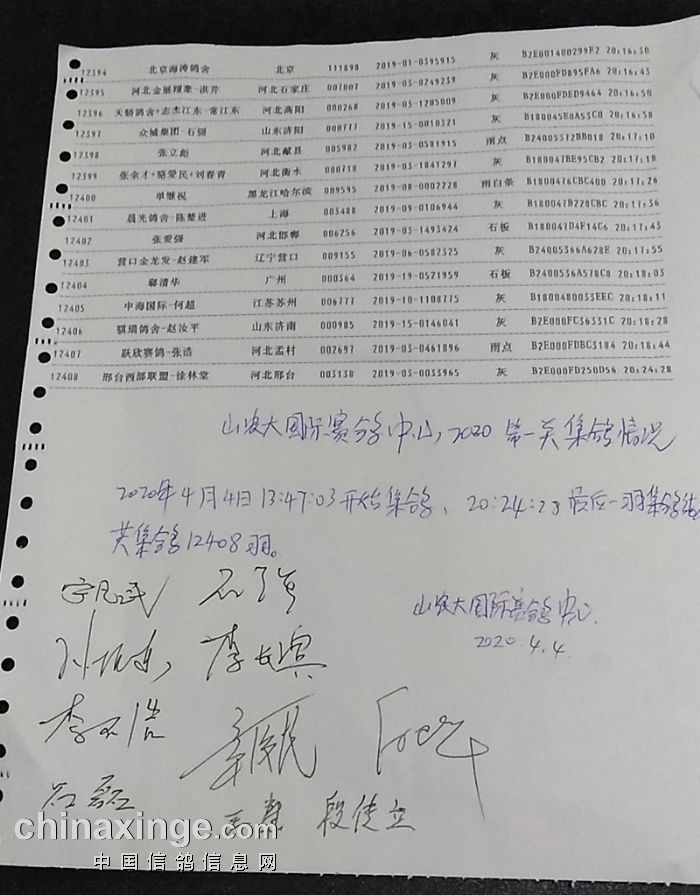 12394 北京海涛鸽舍 北京 111898 2019-01-0395915 灰 B2E001400299F2 20:16:30
12395 河北金展翔豪-洪芹 河北石家庄 007007 2019-03-0249239 灰 B2E000FD895FA6 20:16:43
12396 天骄鸽舍+志杰江东-常江东 河北高阳 000268 2019-03-1205009 灰 B2E000FDED9464 20:16:50
12397 众城集团-石强 山东济阳 000777 2019-15-0010321 灰 B180045E0A53C0 20:16:58
12398 张立彪 河北献县 005982 2019-03-0581915 雨点 B24005372BB018 20:17:10
12399 张余才+骆爱民+刘春青 河北衡水 000718 2019-03-1841297 灰 B180047BE95CB2 20:17:18
12400 单继祝 黑龙江哈尔滨 009595 2019-08-0002228 雨白条 B1800476CBC400 20:17:26
12401 晨光鸽舍-陈楚进 上海 003488 2019-09-0106944 灰 B180047B228CBC 20:17:36
12402 张爱强 河北邯郸 006256 2019-03-1493424 石板 B180047D4F14C6 20:17:43
12403 营口金龙发-赵建军 辽宁营口 009155 2019-06-0582325 灰 B24005366A628E 20:17:55
12404 郗清华 广州 000364 2019-19-0521959 石板 B2400536A578C8 20:18:03
12405 中海国际-何超 江苏苏州 006777 2019-10-1108775 灰 B1800480033EEC 20:18:11
12406 骐瑞鸽舍-赵汝平 山东济南 000985 2019-15-0146041 灰 B2E000FC36331C 20:18:28
12407 跃欣赛鸽-张浩 河北孟村 002697 2019-03-0461896 雨点 B2E000FDBC3184 20:18:44
12408 邢台西部联盟-徐林堂 河北邢台 003138 2019-03-0033965 灰 B2E000FD250D56 20:24:28
山农大国际赛鸽中心,2020第一关集鸽情况
2020年4月4日13:47:03开始集鸽、20:24:28最后一羽集鸽结
共集鸽12408羽。
山农大国际赛鸽中心.
2020.4.4.
李长宾
石磊
段传立
chinaxinge.com
中国信鸽信息网